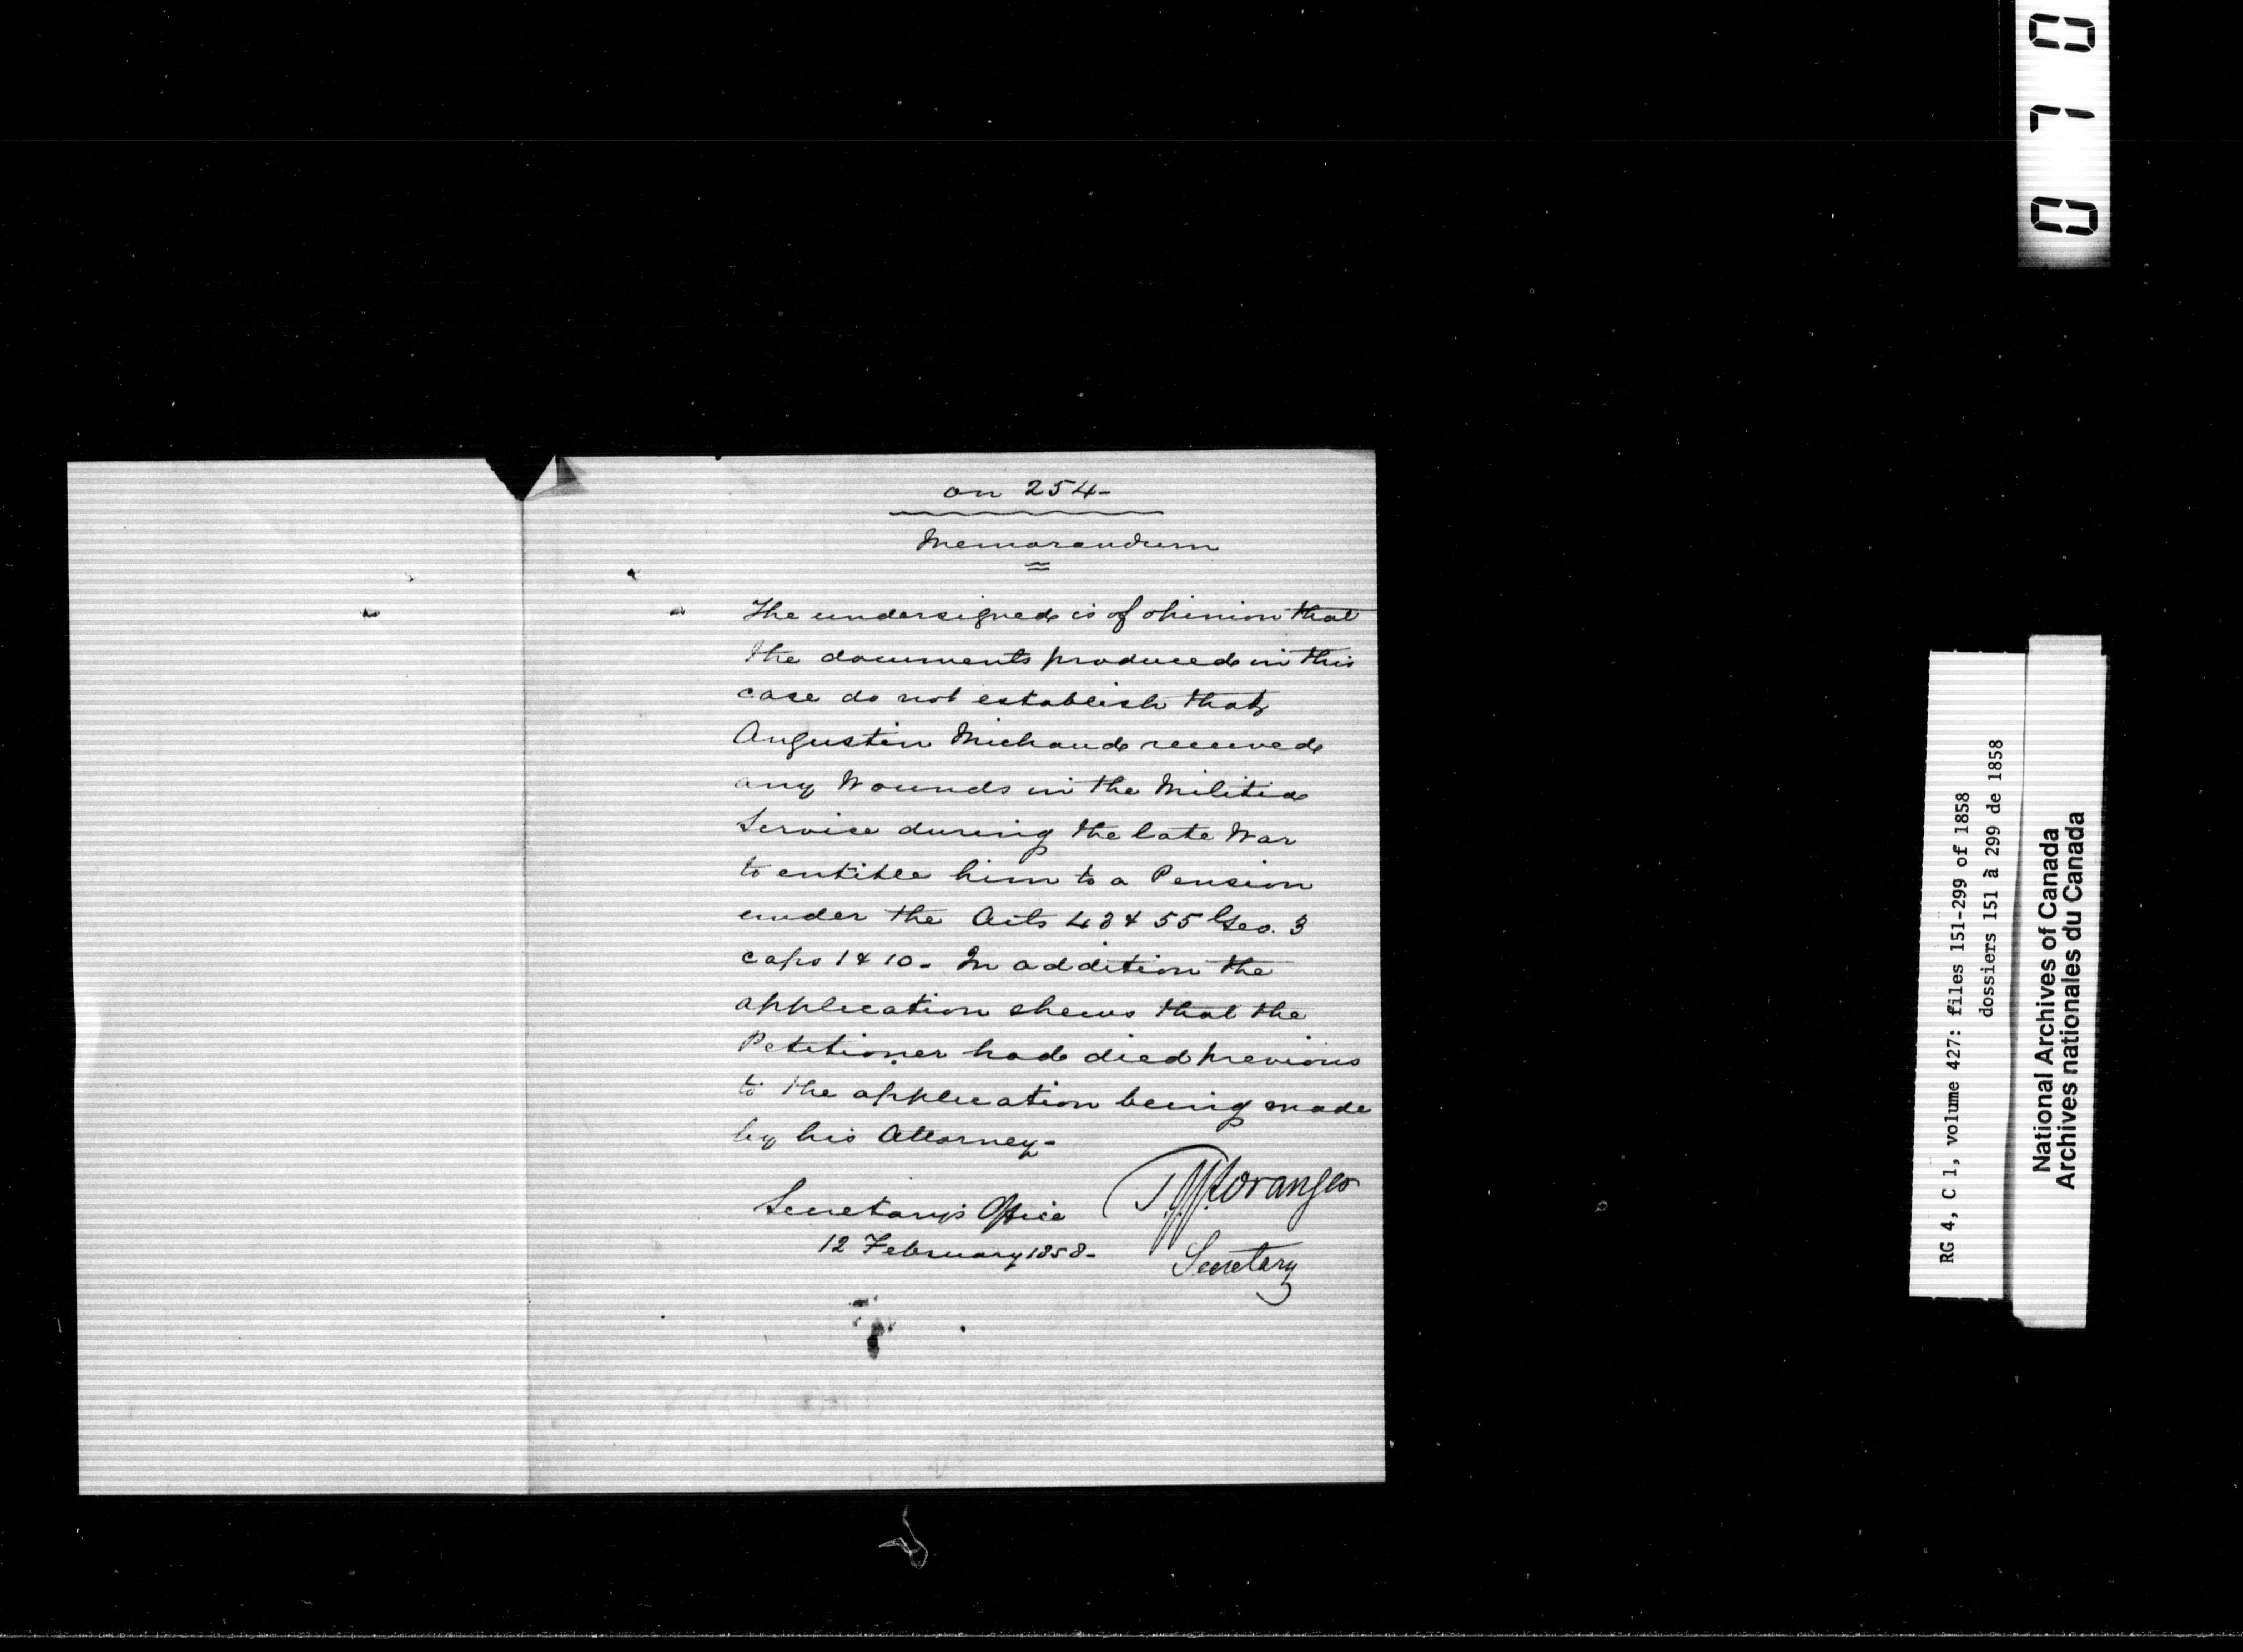 on 254-
Memorandum
The undersigned is of opinion that
the documents produced in this
case do not establish that
Augustin Michaud received
any Wounds in the Militia
Service during the late War
to entitle him to a Pension
under the Acts 43 & 55 Geo. 3
caps 1 & 10 - In addition the
application shews that the
Petitioner had died previous
to the application being made
by his Attorney -
Secretary's Office
12 February 1858 -
T.J.J. Loranger
Secretary
0710
RG 4, C 1, volume 427: files 151-299 of 1858
dossiers 151 à 299 de 1858
National Archives of Canada
Archives nationales du Canada